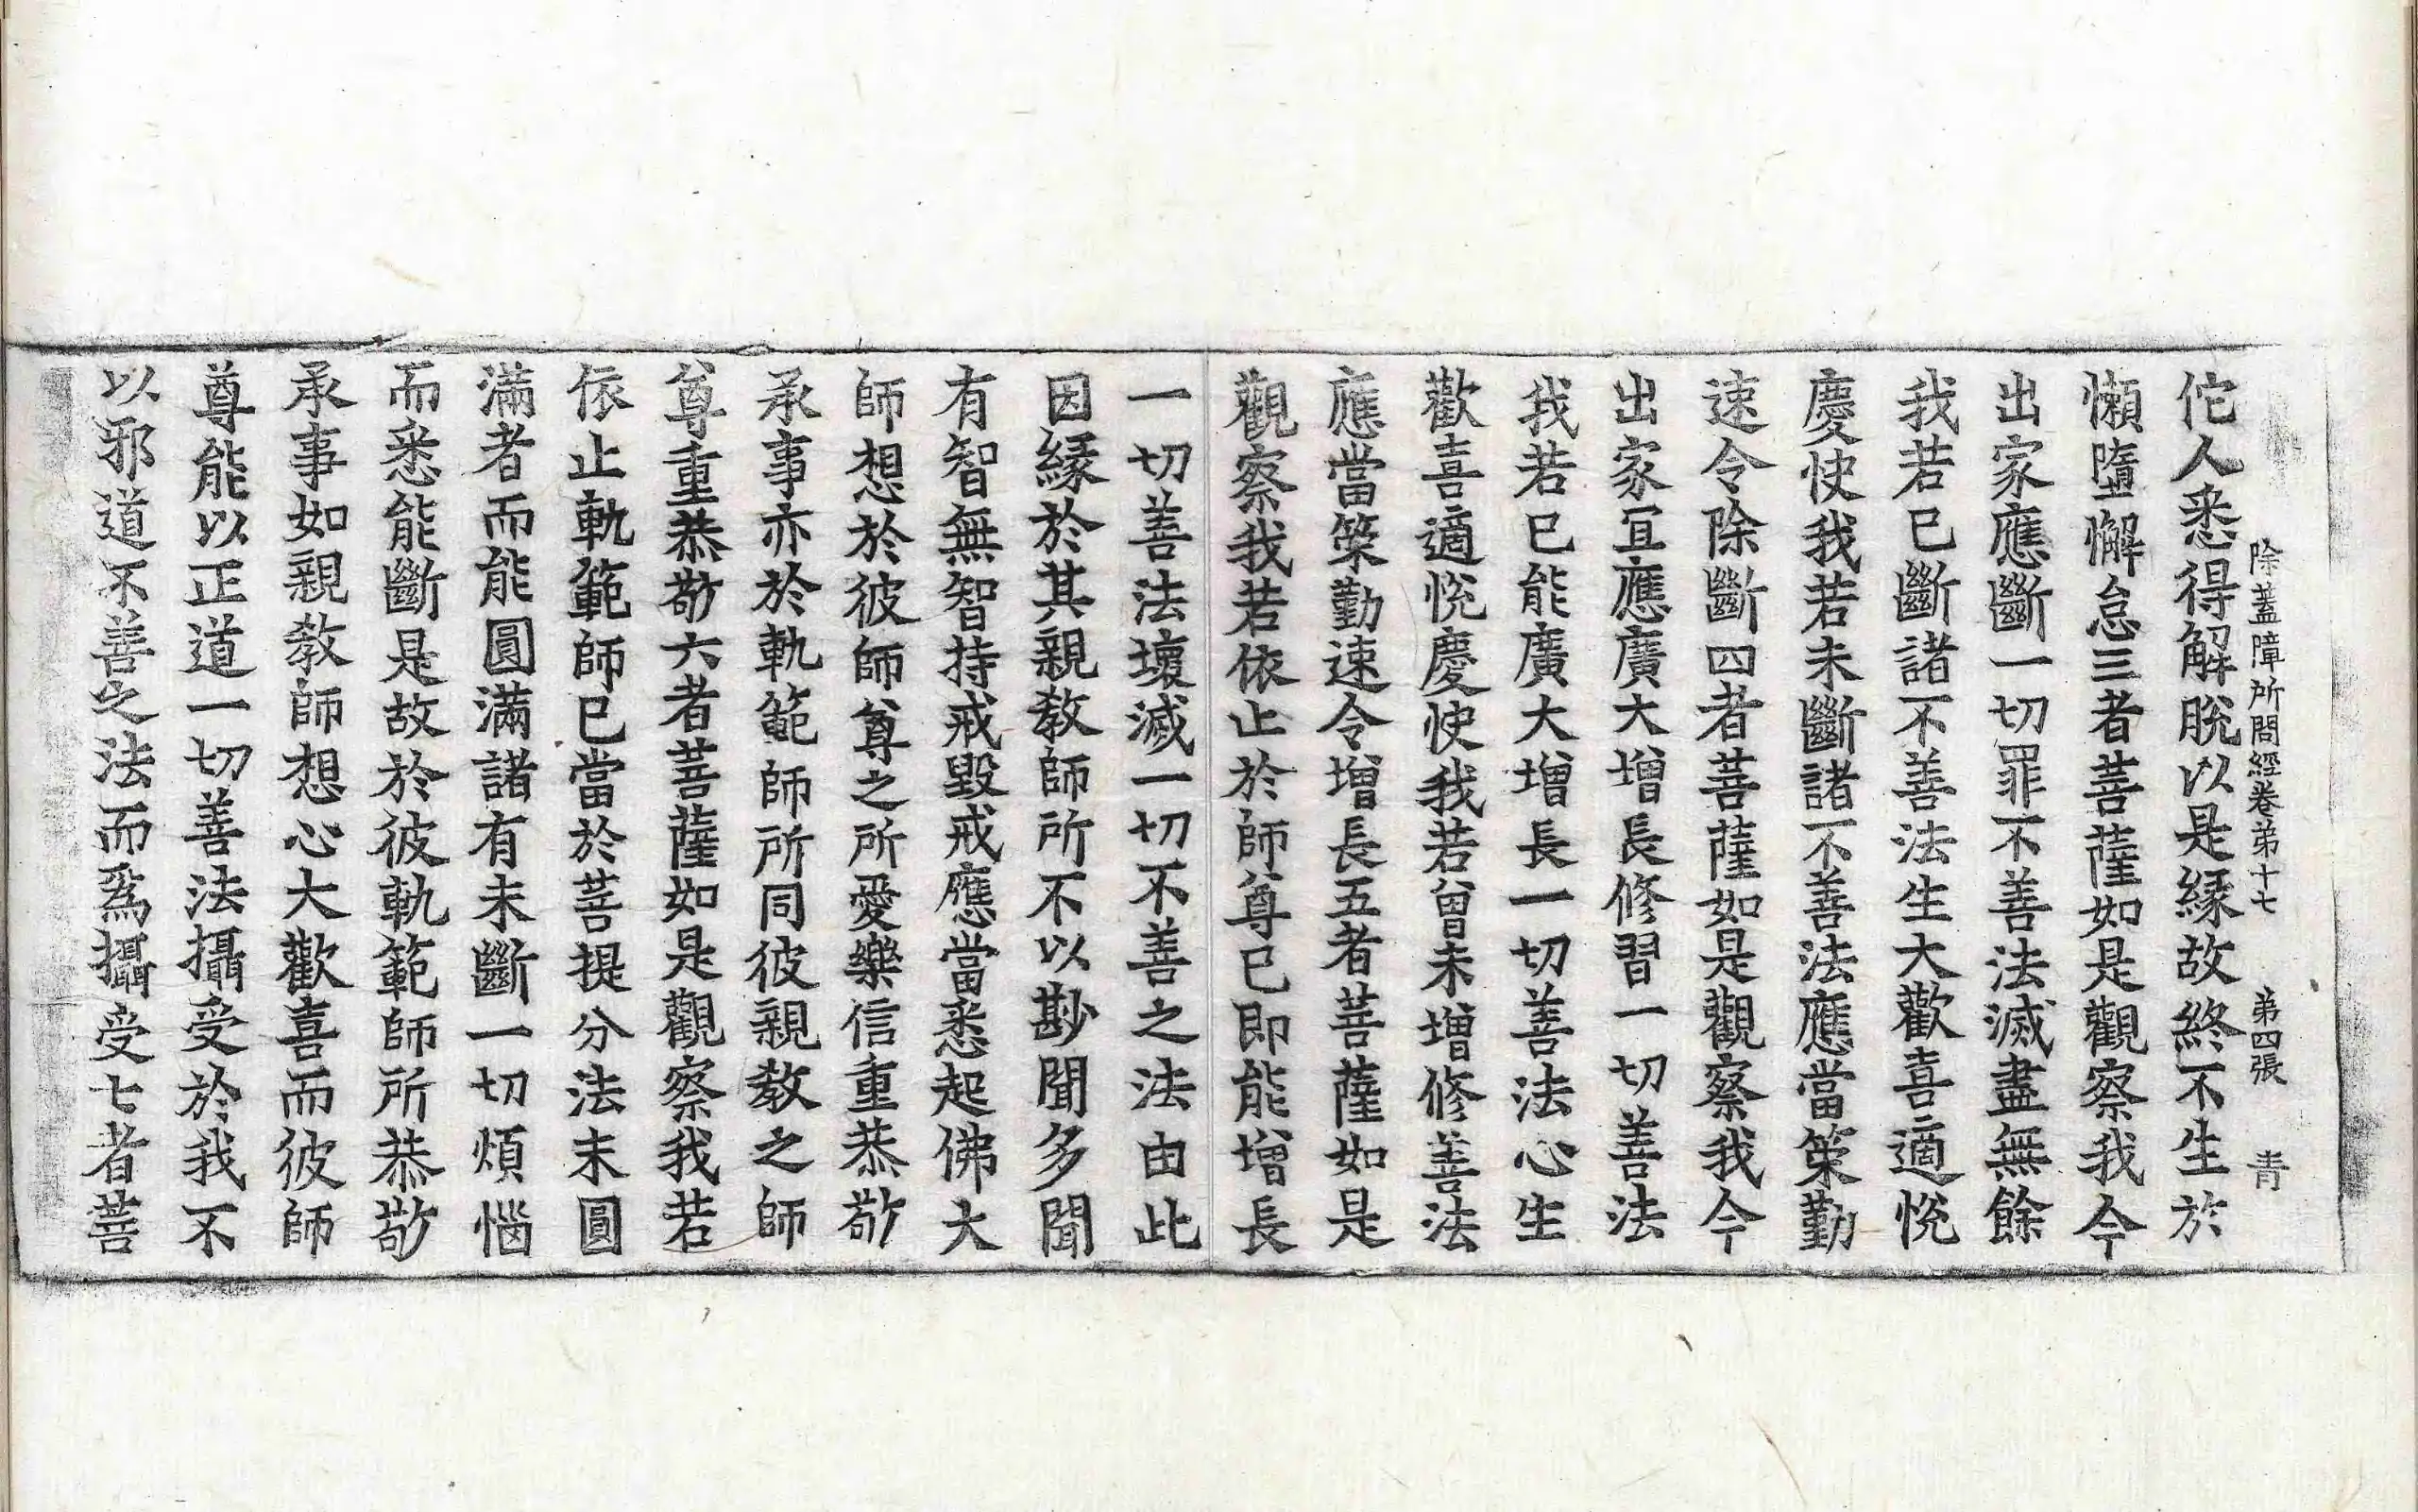 除蓋障所問經卷弟十七 弟四張 青
佗人悉得解脫以是縁故終不生於
懶墮懈怠三者菩薩如是觀察我今
出家應斷一切罪不善法滅盡無餘
我若已斷諸不善法生大歡喜適悅
慶快我若未斷諸不善法應當策勤
速令除斷四者菩薩如是觀察我今
出家冝應廣大增長修習一切善法
我若已能廣大增長一切善法心生
歡喜適悅慶快我若曾未增修善法
應當策勤速令增長五者菩薩如是
觀察我若依止於師尊已即能增長
一切善法壞滅一切不善之法由此
因縁於其親教師所不以尠聞多聞
有智無智持戒毀戒應當悉起佛大
師想於彼師尊之所愛樂信重恭敬
承事亦於軌範師所同彼親教之師
尊重恭敬六者菩薩如是觀察我若
依止軌範師已當於菩提分法未圓
滿者而能圓滿諸有未斷一切煩惱
而悉能斷是故於彼軌範師所恭敬
承事如親教師想心大歡喜而彼師
尊能以正道一切善法攝受於我不
以邪道不善之法而爲攝受七者菩